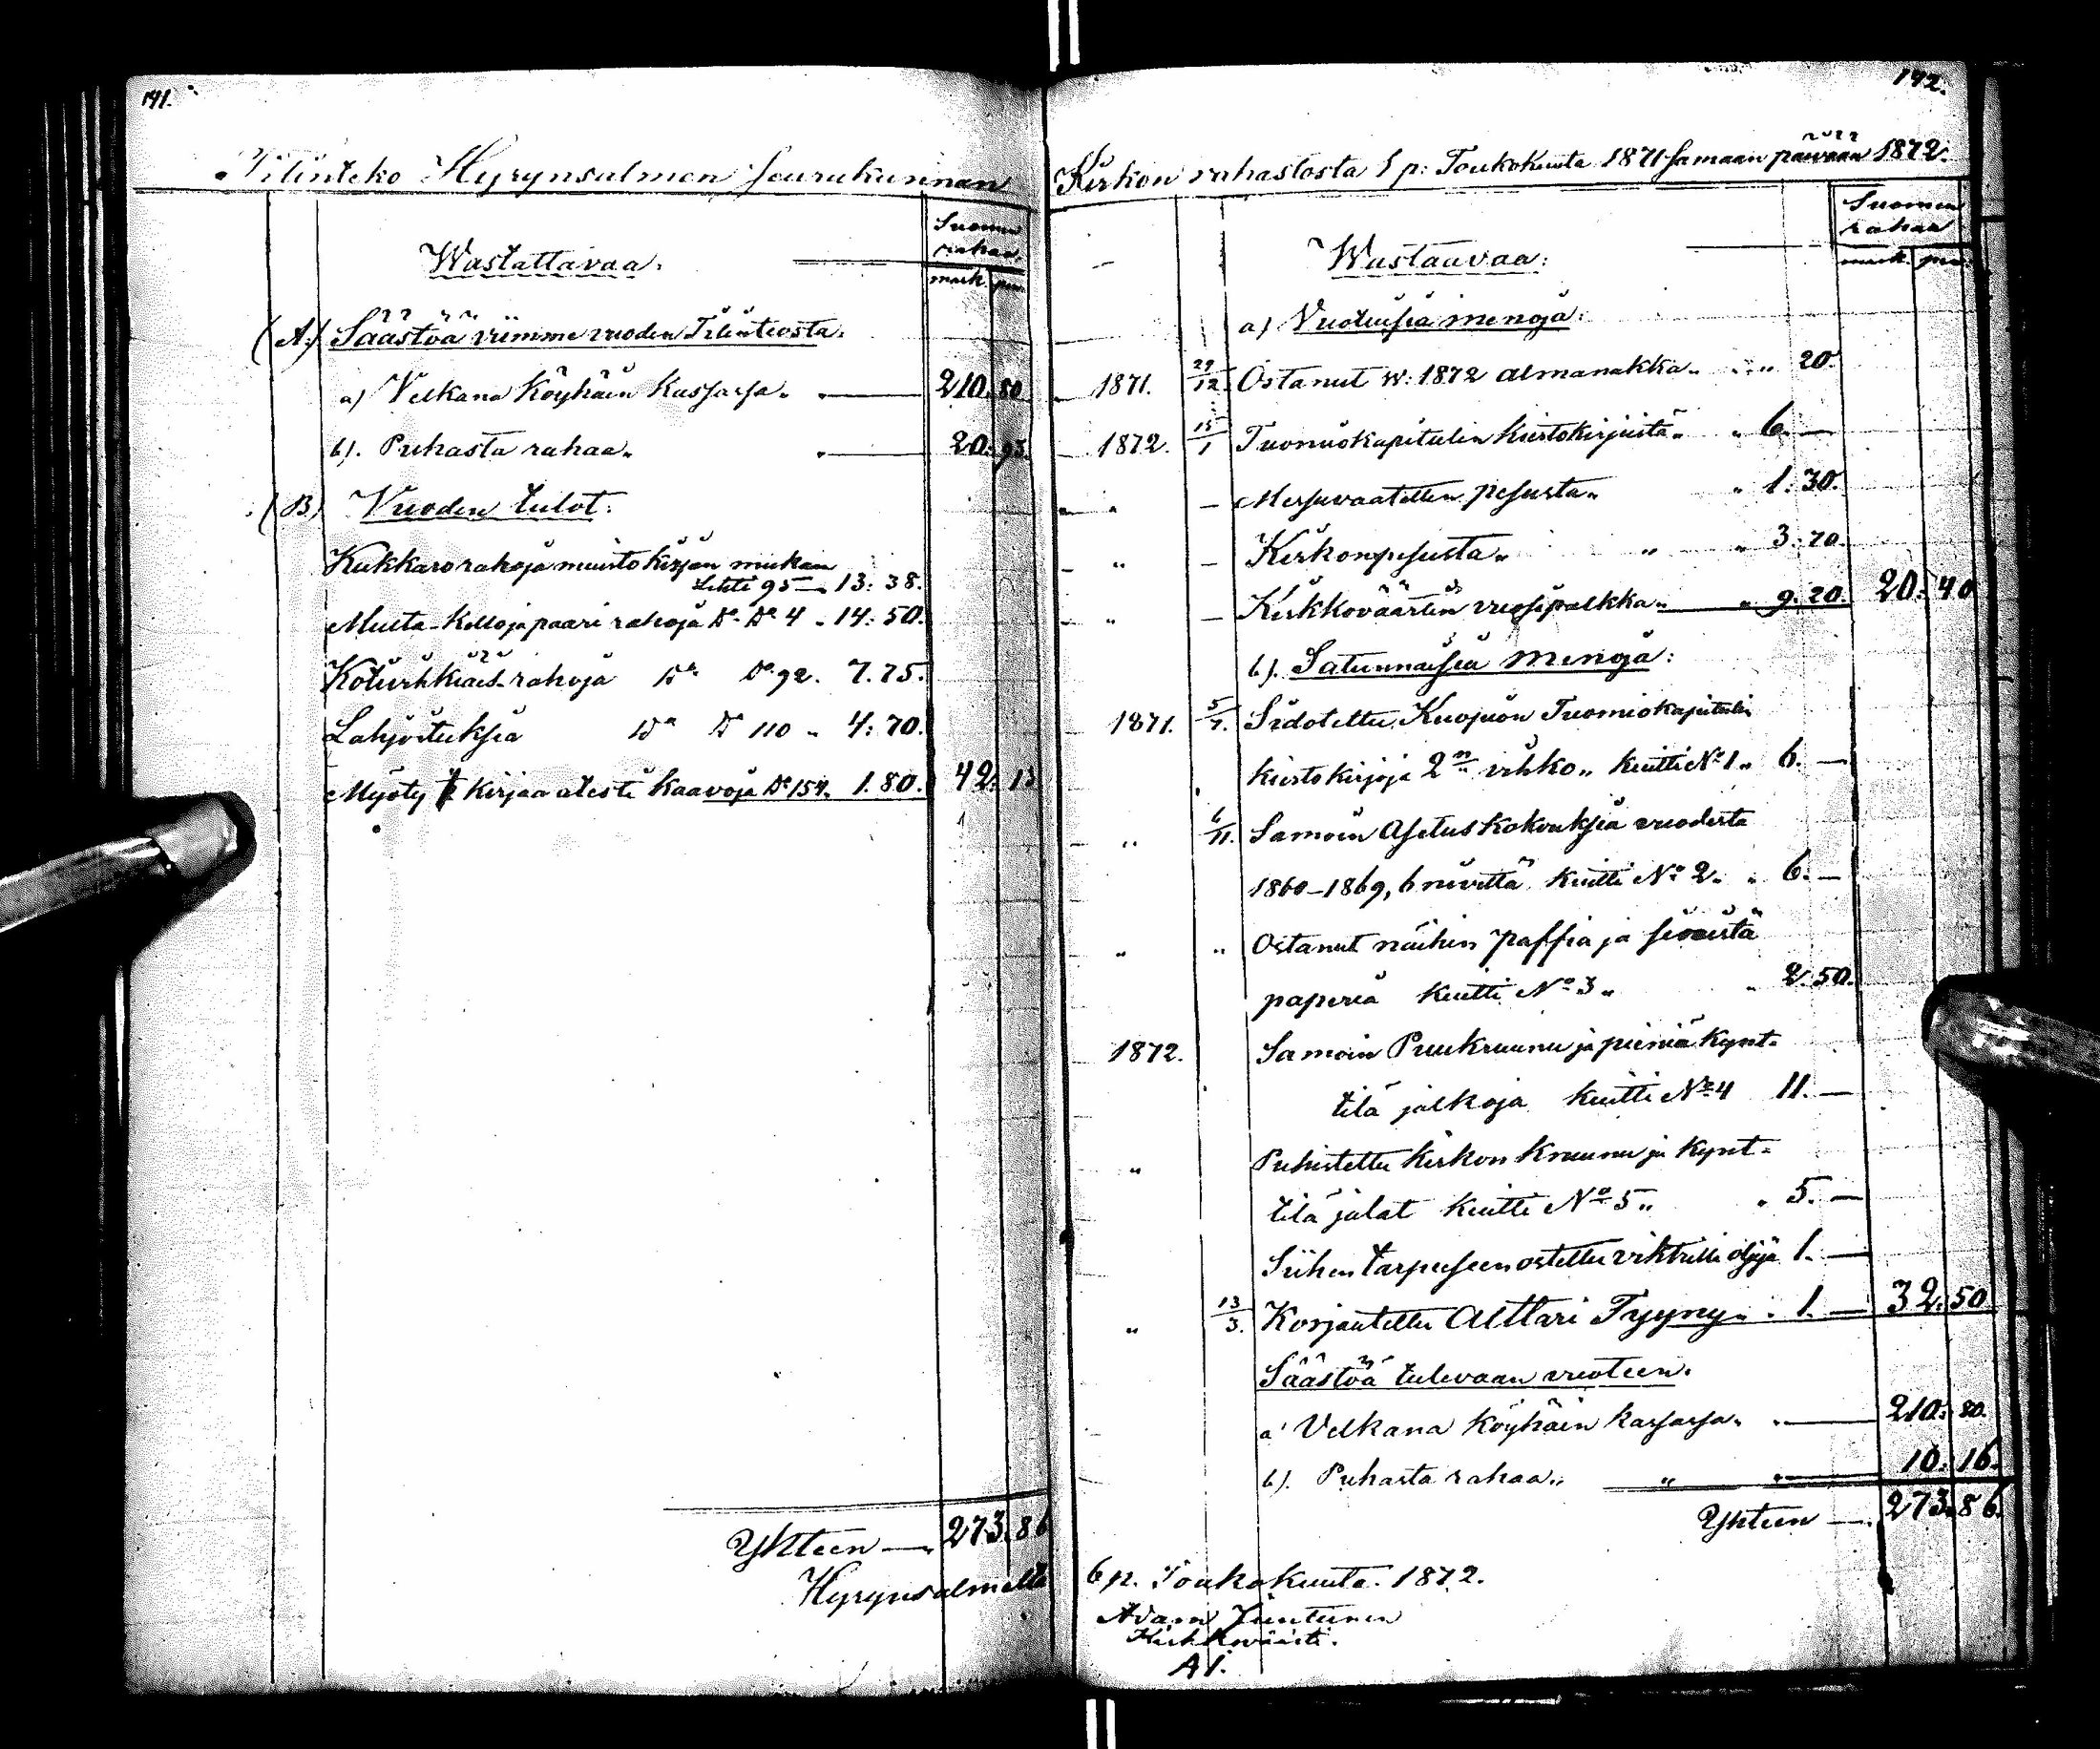 191.
Tilinteko Hyrynsalmen Seurakunnan
Suomen
rahaa.
mark. pen.
Wastattavaa:
(A.) Säästöä viimme vuoden Tilinteosta:
a) Velkana Köyhäin Kassassa „ 210. 80.
b). Puhasta rahaa „ 20. 93.
(B.) Vuoden tulot:
Kukkaro rahoja muistokirjan mukaan
Lehti 95 — 13: 38.
Multa- Kello ja paari rahoja Do Do 4 „ 14: 50.
Kotivihkiäis-rahoja Do Do 92. 7. 75.
Lahjoituksia Do Do 110 „ 4: 70.
Myöty kirjaa atesti kaavoja Do 154. 1. 80. 42: 13
Yhteen — 273. 86
Hyrynsalmella
192.
Kirkon rahastosta 1 p: Toukokuuta 1871 Samaan päivään 1872.
Suomen
rahaa
mark. pen.
Wastaavaa:
a) Vuotuisia menoja:
1871. 29/12 Ostanut w: 1872 almanakka „ „ 20.
1872. 15/1 Tuomiokapitulin kiertokirjeistä „ „ 6. —
„ — Messuvaatetten pesusta „ „ 1. 30.
„ — Kirkonpesusta „ „ „ 3. 70.
„ — Kirkkoväärtin vuosipalkka „ „ 9. 20. 20. 40
b). Satunnaisia menoja:
1871. 5/7. Sidotettu Kuopion Tuomiokapitulin
kiertokirjoja 2 n vihko „ kuitti No 1 „ 6. —
„ 6/11. Samoin Asetus Kokouksia vuodesta
1860–1869, 6 nivettä kuitti No 2. „ 6. —
„ „ Ostanut näihin paffia ja siveistä
paperia kuitti No 3 „ „ 2. 50.
1872. Samoin Puukruunu ja pieniä kynt-
tilä jalkoja kuitti No 4 11. —
„ Puhistettu kirkon kruunu ja kynt-
tilä jalat kuitti No 5 „ „ 5. —
Siihen tarpeeseen ostettu viktrilli öljyä 1. —
„ 13/3. Korjautettu Alttari Tyyny „ „ 1. — 32. 50
Säästöä tulevaan vuoteen.
a) Velkana köyhäin kassassa „ „ 210. 80.
b). Puhasta rahaa „ „ „ 10. 16.
Yhteen — 273. 86.
6 p. Toukokuuta. 1872.
Adam Juntunen
Kirkkoväärti.
A I.